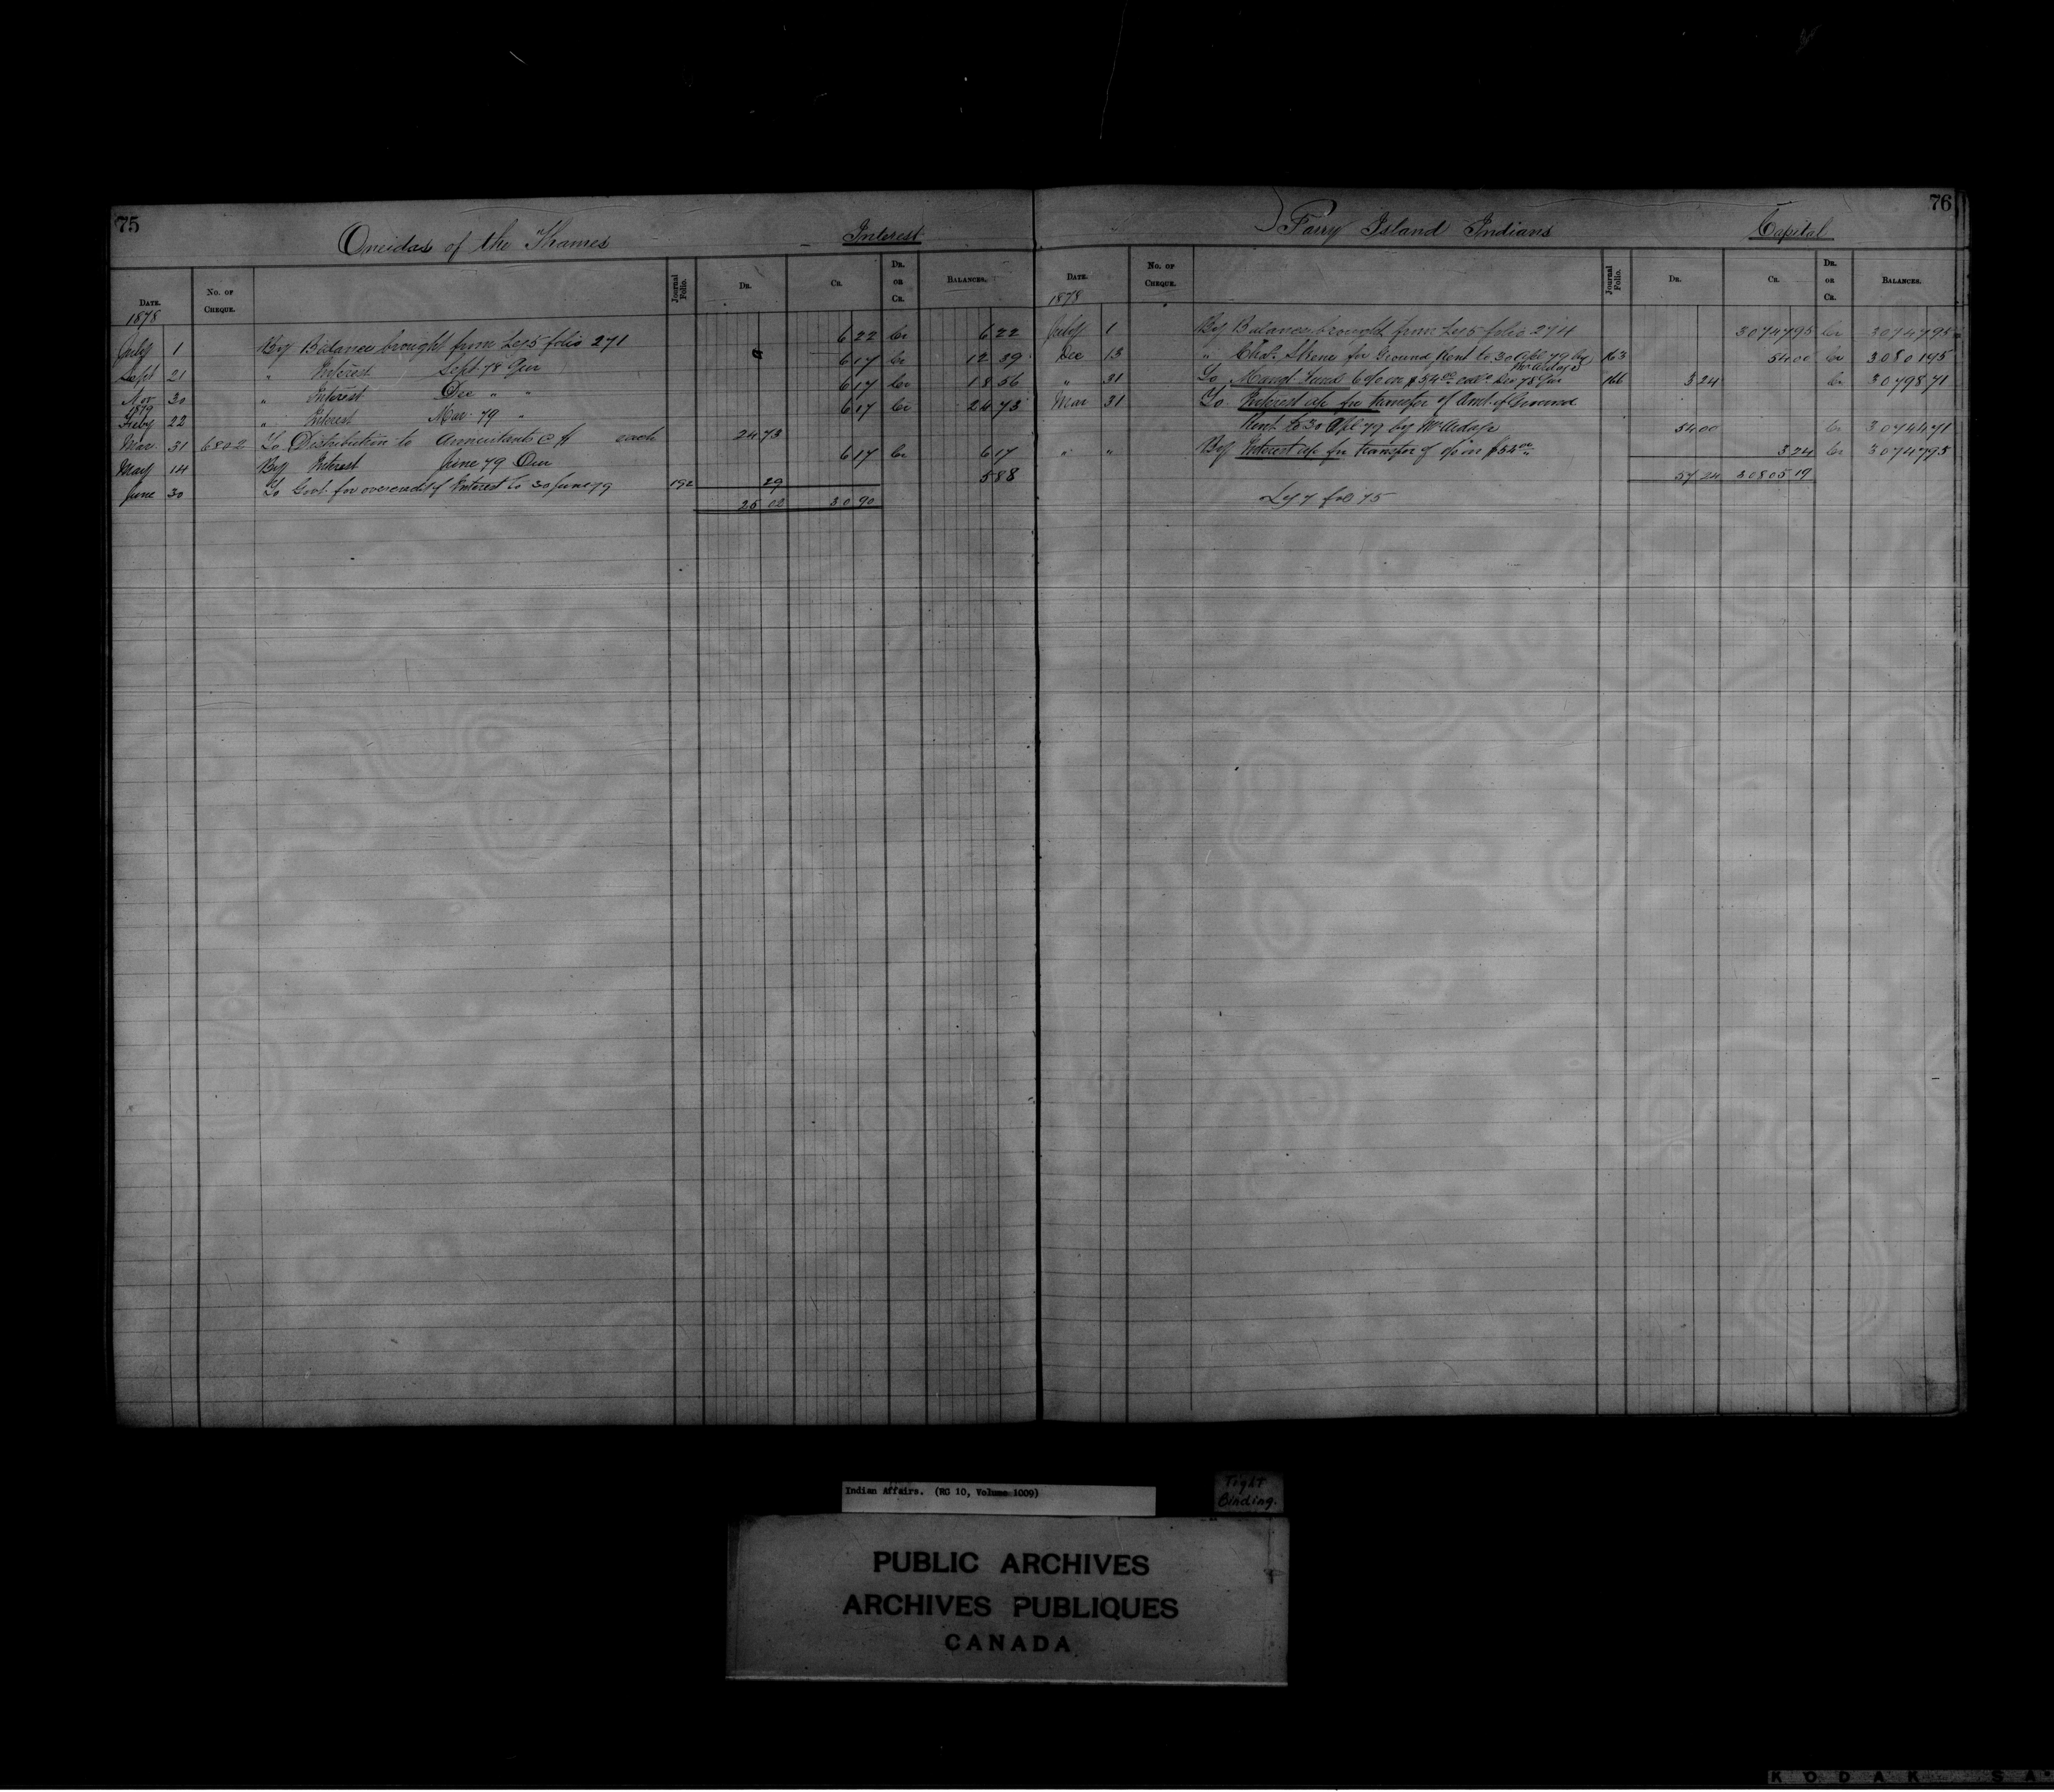 75
Oneidas of the Thames Interest
DATE. No. OF CHEQUE. Journal Folio. DR. CR. DR. OR CR. BALANCES.
1878
July 1 By Balance brought from Leg 5 folio 271 6 22 Cr 6 22
Sept 21 " Interest Sept 78 Qur 6 17 Cr 12 39
Nov 30 " Interest Dec " " 6 17 Cr 18 56
1879
Feby 22 " Interest Mar 79 " 6 17 Cr 24 73
Mar 31 6802 To Distribution to Annuitants @ $ each 24 73
May 14 By Interest June 79 Qur 6 17 Cr 6 17
June 30 To Govt. for overcredit of Interest to 30 June 79 192 29 5 88
25 02 30 90
76
Parry Island Indians Capital
DATE. No. OF CHEQUE. Journal Folio. DR. CR. DR. OR CR. BALANCES.
1878
July 1 By Balance brought from Leg 5 folio 274 30747 95 Cr 30747 95
Dec 13 " Chas. Skene for Ground Rent to 30 Apl 79 by 163 54 00 Cr 30801 95
" 31 To Mangt Fund 6 % on $54 00 Dec 78 Qur 166 3 24 Cr 30798 71
Mar 31 To Interest a/c for transfer of Amt. of Ground
Rent to 30 Apl 79 by 54 00 Cr 30744 71
" " By Interest a/c for transfer of on $54 00 3 24 Cr 30747 95
57 24 30805 19
Leg 7 fol 75
Indian Affairs. (RG 10, Volume 1009)
Tight
Binding.
PUBLIC ARCHIVES
ARCHIVES PUBLIQUES
CANADA